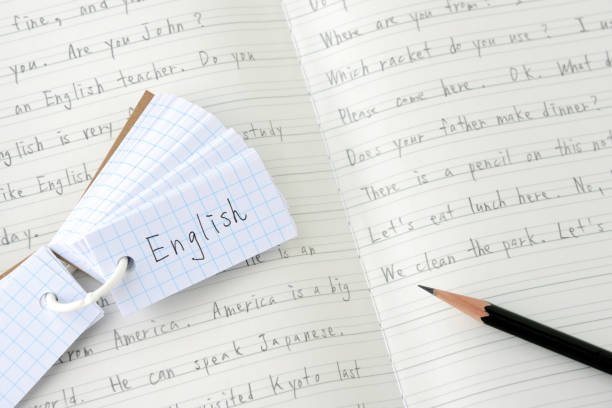 fine, and you
you. Are you John?
an English teacher. Do you
English is very study
like English
day.
He is an
from America. America is a big
world. He can speak Japanese.
visited Kyoto last
English
Do
Where are you from?
Which racket do you use?
Please come here. OK. What
Does your father make dinner?
There is a pencil on this
Let's eat lunch here. No,
We clean the park. Let's